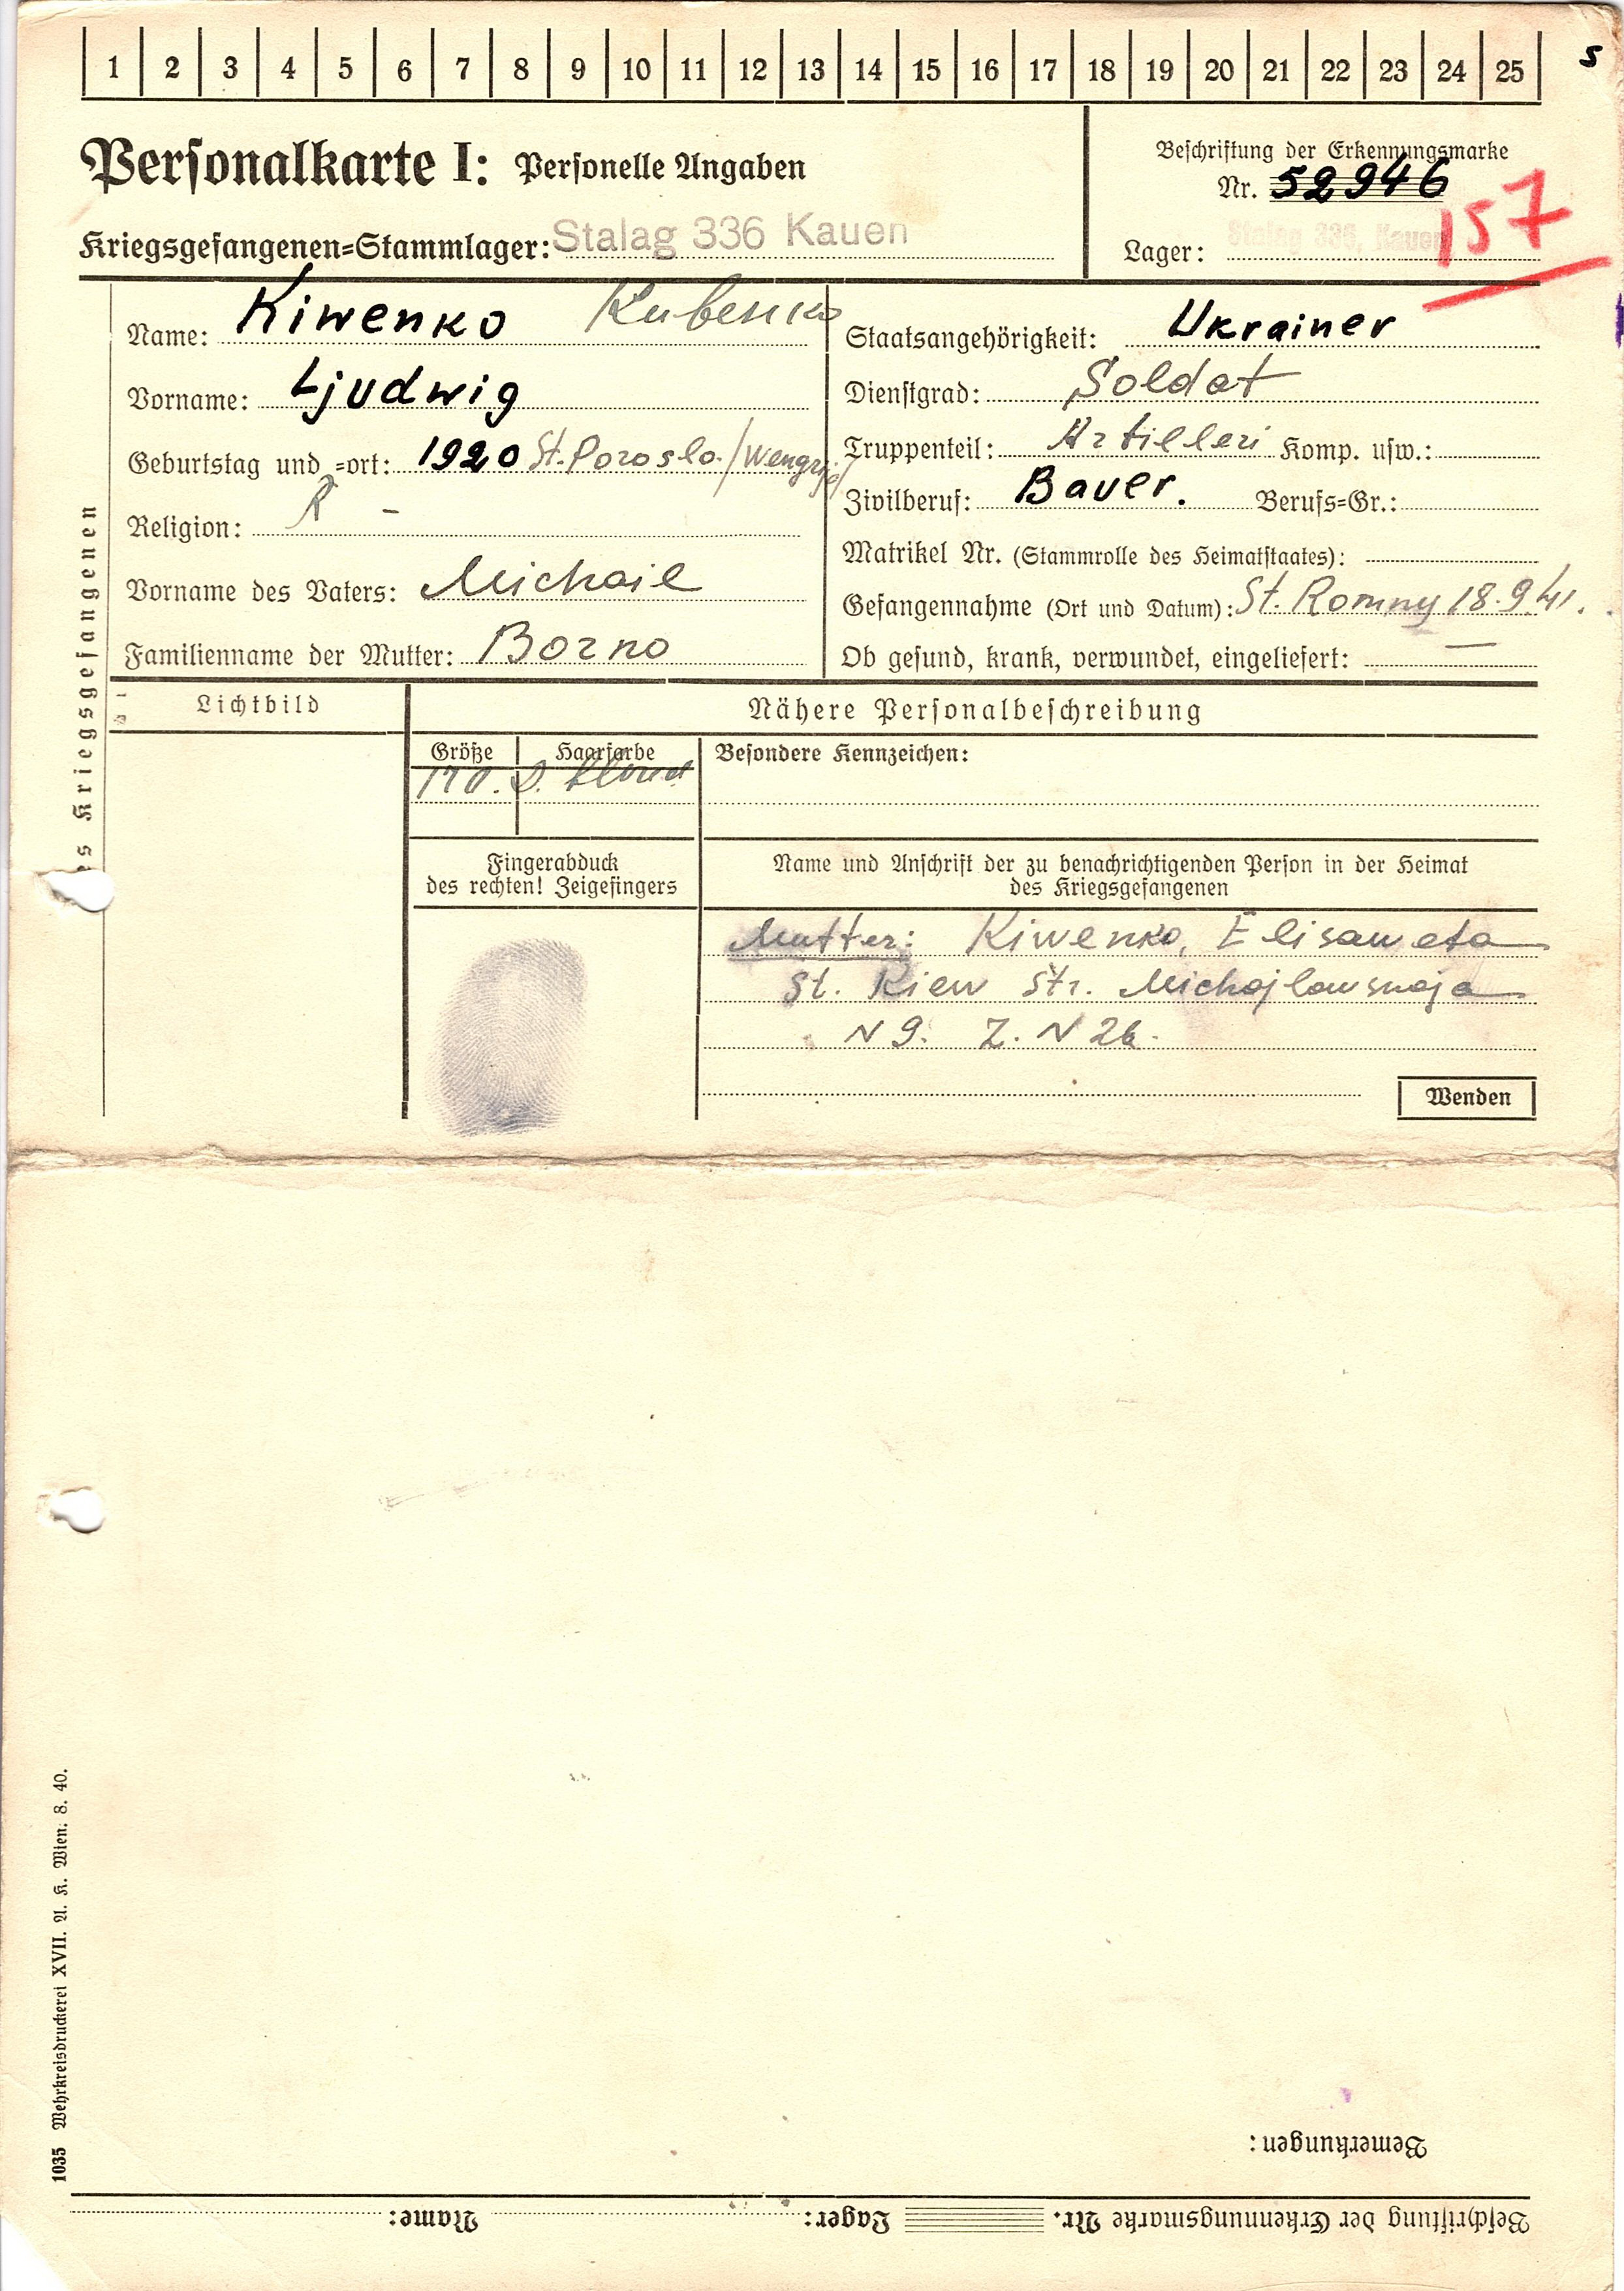 1 2 3 4 5 6 7 8 9 10 11 12 13 14 15 16 17 18 19 20 21 22 23 24 25
s
Personalkarte I: Personelle Angaben
Beschriftung der Erkennungsmarke
Nr. 52946
157
Kriegsgefangenen=Stammlager: Stalag 336 Kauen
Lager: Stalag 336, Kauen
Name: Kiwenko Kubenko
Vorname: Ljudwig
Geburtstag und =ort: 1920 St. Poroslo. /Wengrje/
Religion: R -
Vorname des Vaters: Michail
Familienname der Mutter: Borno
Staatsangehörigkeit: Ukrainer
Dienstgrad: Soldat
Truppenteil: Artilleri Komp. usw.:
Zivilberuf: Bauer. Berufs=Gr.:
Matrikel Nr. (Stammrolle des Heimatstaates):
Gefangennahme (Ort und Datum): St. Romny 18.9.41.
Ob gesund, krank, verwundet, eingeliefert: —
des Kriegsgefangenen
Lichtbild
Nähere Personalbeschreibung
Größe Haarfarbe Besondere Kennzeichen:
170. D. blond
Fingerabduck
des rechten! Zeigefingers
Name und Anschrift der zu benachrichtigenden Person in der Heimat
des Kriegsgefangenen
Mutter: Kiwenko, Elisaweta
St. Kiew Str. Michajlowskaja
N 9. Z. N 26.
Wenden
1035 Wehrkreisdruckerei XVII. A. K. Wien. 8. 40.
Bemerkungen:
Beschriftung der Erkennungsmarke Nr. Lager: Name: